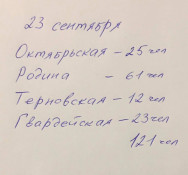 23 сентября
Октябрьская - 25 чел
Родина - 61 чел
Терновская - 12 чел
Гвардейская - 23 чел
121 чел